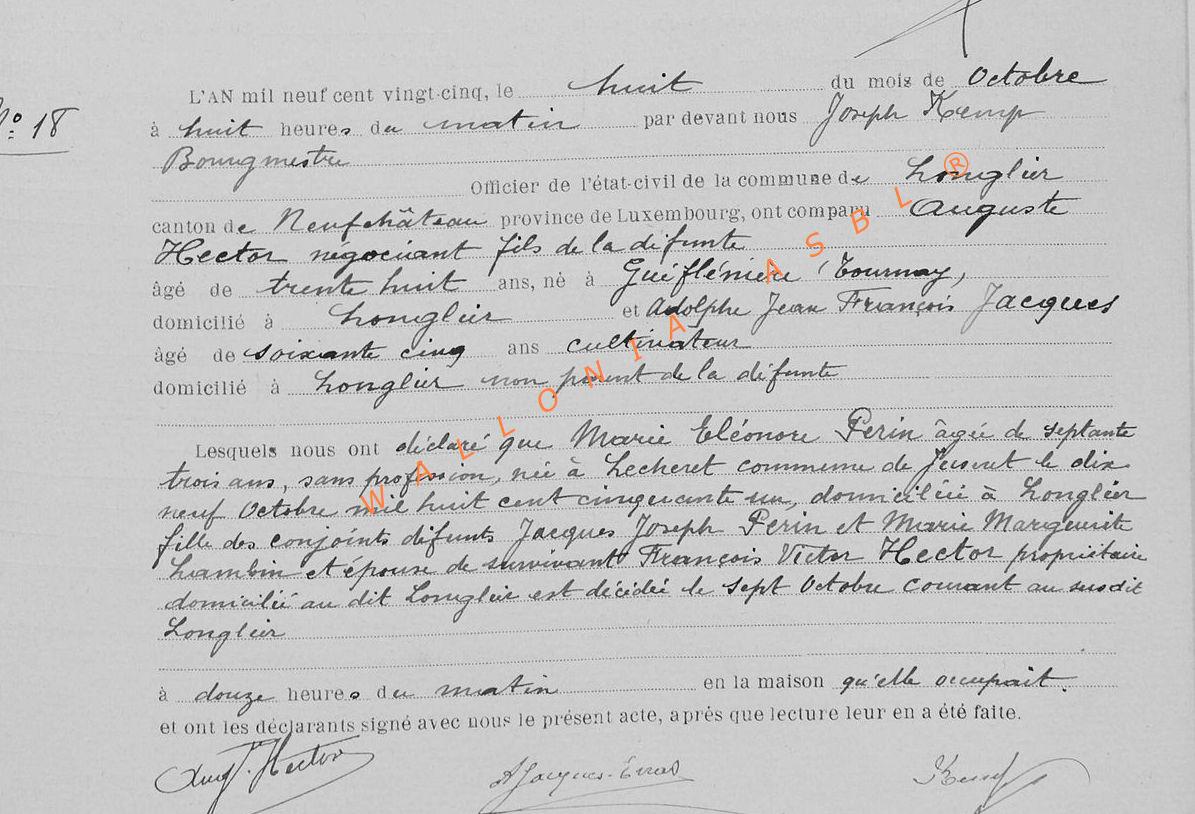 No 18
L'AN mil neuf cent vingt-cinq, le huit du mois de Octobre
à huit heures du matin par devant nous Joseph Kemp
Bourgmestre
Officier de l'état-civil de la commune de Longlier
canton de Neufchâteau province de Luxembourg, ont comparu Auguste
Hector négociant fils de la défunte
âgé de trente huit ans, né à Tournay,
domicilié à Longlier et Adolphe Jean François Jacques
âgé de soixante cinq ans cultivateur
domicilié à Longlier non parent de la défunte
Lesquels nous ont déclaré que Marie Eléonore Perin âgée de septante
trois ans, sans profession, née à Lecheret commune de le dix
neuf Octobre mil huit cent cinquante un, domiciliée à Longlier
fille des conjoints défunts Jacques Joseph Perin et Marie Marguerite
Lambin et épouse de survivant François Victor Hector propriétaire
domicilié au dit Longlier est décédée le sept Octobre courant au susdit
Longlier
à douze heures du matin en la maison qu'elle occupait.
et ont les déclarants signé avec nous le présent acte, après que lecture leur en a été faite.
Aug. Hector A Jacques- Kemp
WALLONIA ASBL ®